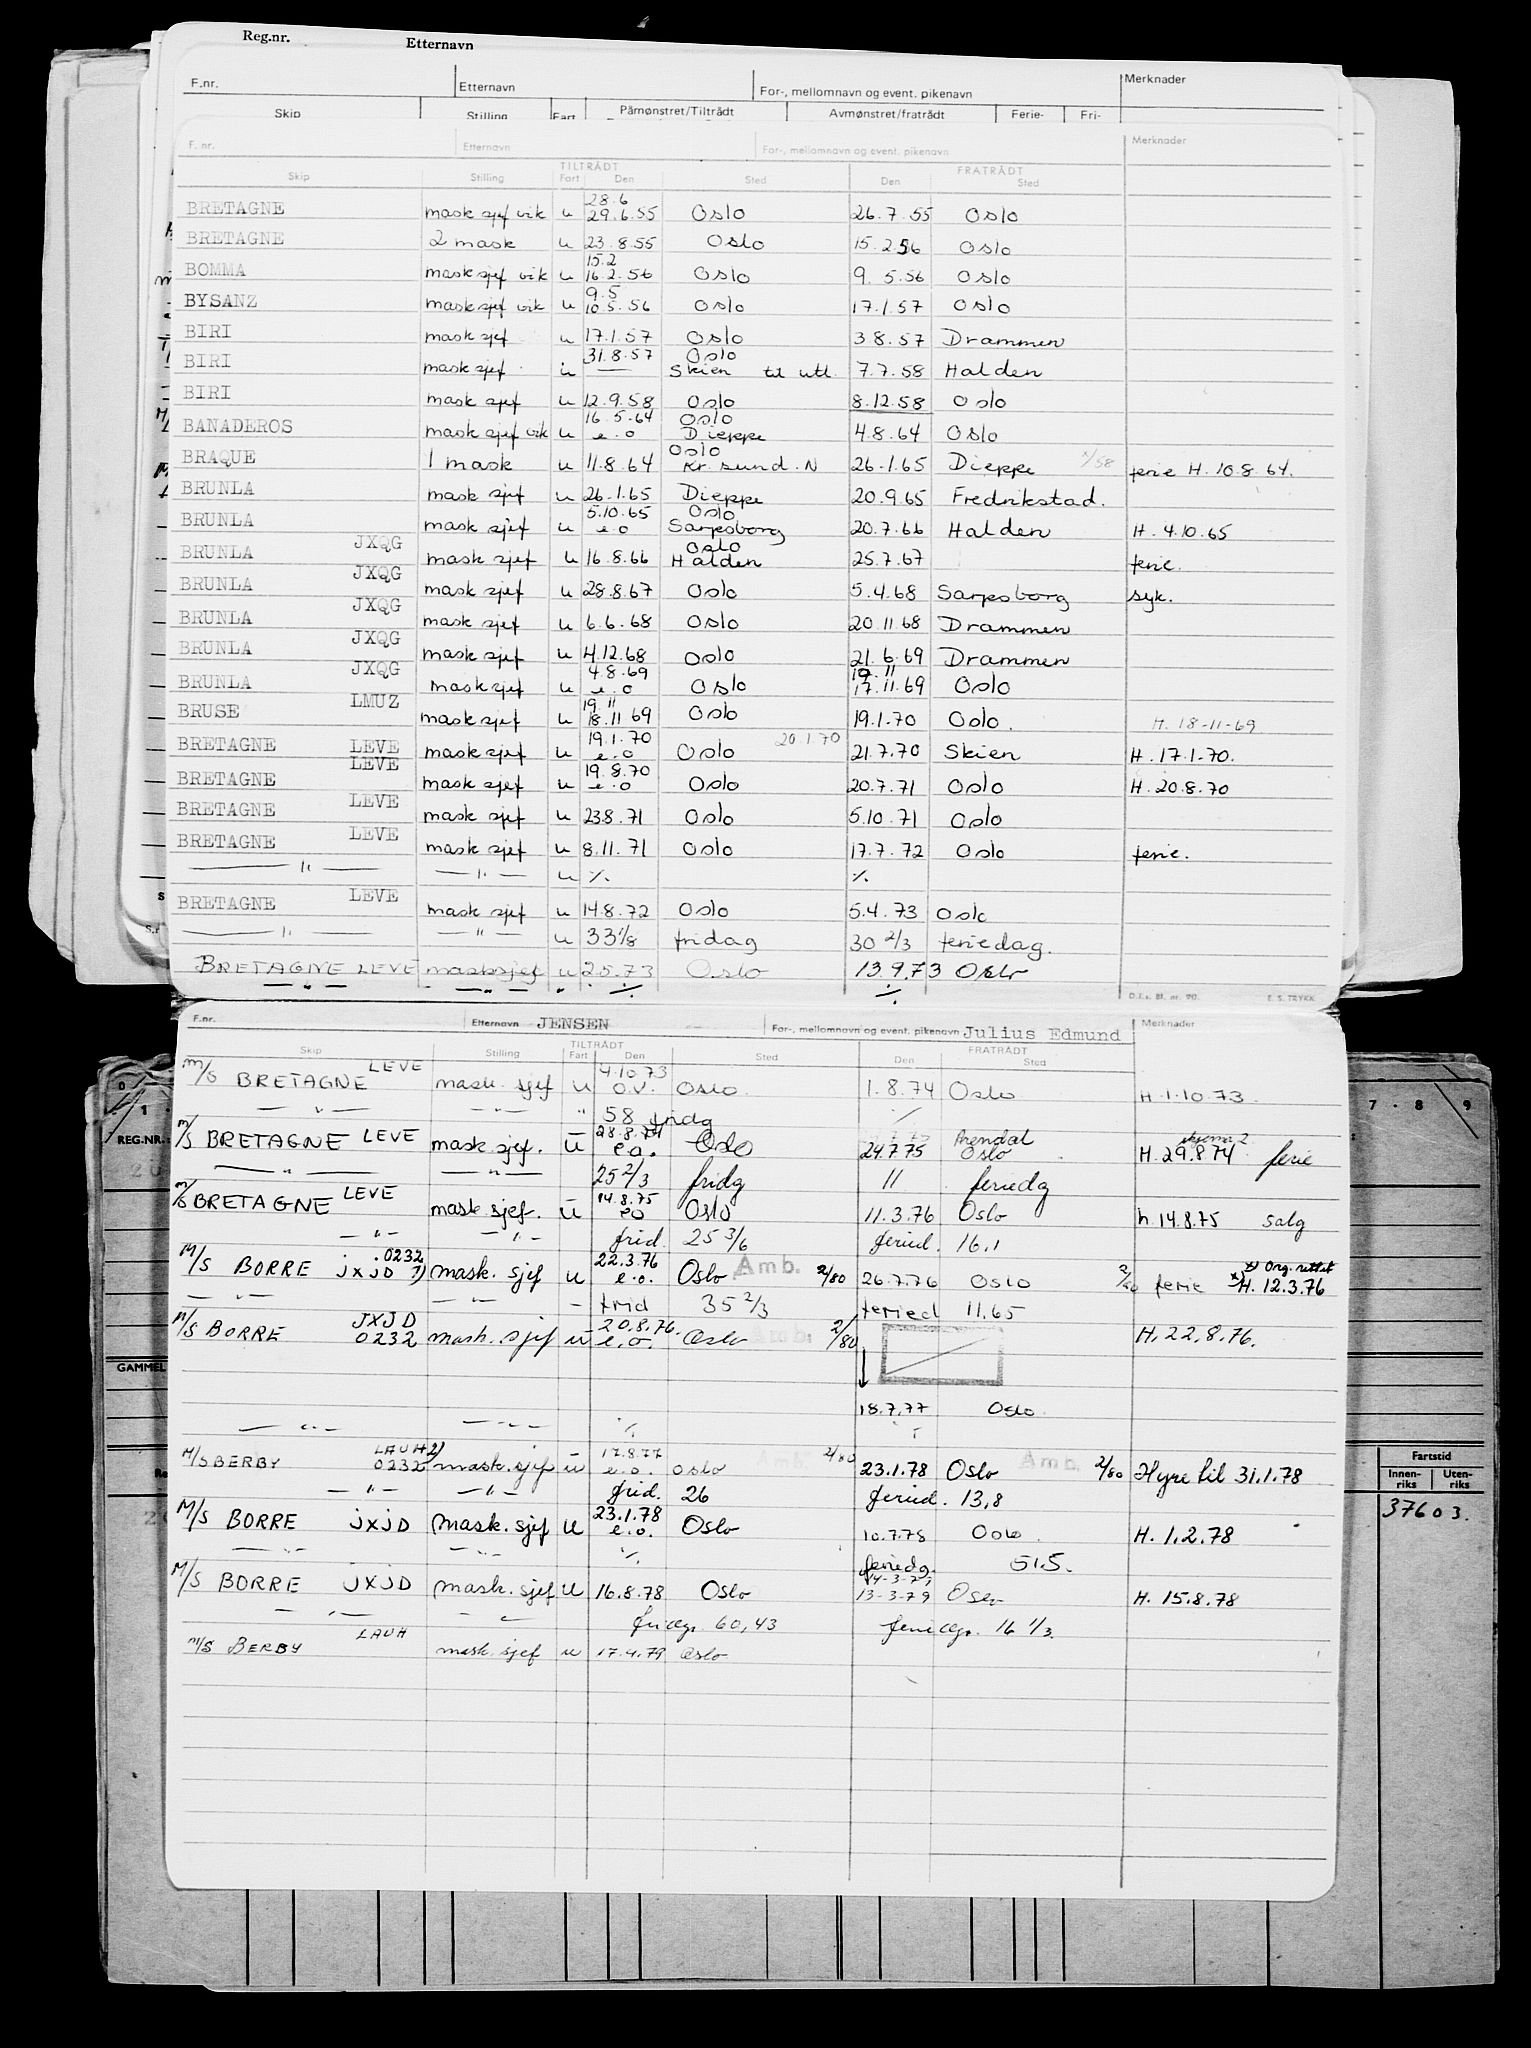 Reg.nr. Etternavn
F.nr. Etternavn For-, mellomnavn og event. pikenavn Merknader
Skip Stilling Fart Påmønstret/Tiltrådt Avmønstret/fratrådt Ferie- Fri-
F. nr. Etternavn For-, mellomnavn og event. pikenavn Merknader
TILTRÅDT FRATRÅDT
Skip Stilling Fart Den Sted Den Sted
28.6
BRETAGNE mask sjef vik u 29.6.55 Oslo 26.7.55 Oslo
BRETAGNE 2 mask u 23.8.55 Oslo 15.2.56 Oslo
15.2
BOMMA mask sjef vik u 16.2.56 Oslo 9.5.56 Oslo
9.5
BYSANZ mask sjef vik u 10.5.56 Oslo 17.1.57 Oslo
BIRI mask sjef u 17.1.57 Oslo 3 8.57 Drammen
31.8.57 Oslo
BIRI mask sjef u — Skien til utl. 7.7.58 Halden
BIRI mask sjef u 12.9.58 Oslo 8.12.58 Oslo
16.5.64 Oslo
BANADEROS mask sjef vik u e.o Dieppe 4.8.64 Oslo
Oslo
BRAQUE 1 mask u 11.8.64 Kr.sund.N 26.1.65 Dieppe ferie H. 10.8.64.
BRUNLA mask sjef u 26.1.65 Dieppe 20.9.65 Fredrikstad.
5.10.65 Oslo
BRUNLA mask sjef u e.o Sarpsborg 20.7.66 Halden H. 4.10.65
JXQG Oslo
BRUNLA mask sjef u 16.8.66 Halden 25.7.67 ferie.
JXQG
BRUNLA mask sjef u 28.8.67 Oslo 5.4.68 Sarpsborg syk.
JXQG
BRUNLA mask sjef u 6.6.68 Oslo 20.11.68 Drammen
JXQG
BRUNLA mask sjef u 4.12.68 Oslo 21.6.69 Drammen
JXQG 4.8.69 19.11
BRUNLA mask sjef u e.o Oslo 17.11.69 Oslo
LMUZ 19.11
BRUSE mask sjef u 18.11 69 Oslo 19.1.70 Oslo. H. 18-11-69
19.1.70 20.1.70
BRETAGNE LEVE mask sjef u e.o Oslo 21.7.70 Skien H. 17.1.70.
LEVE 19.8.70
BRETAGNE mask sjef u e.o Oslo 20.7.71 Oslo H. 20.8.70
LEVE
BRETAGNE mask sjef u 23.8.71 Oslo 5.10.71 Oslo
LEVE
BRETAGNE mask sjef u 8.11.71 Oslo 17.7.72 Oslo ferie.
— " — — " — u ⁒ ⁒
LEVE
BRETAGNE mask sjef u 14.8.72 Oslo 5.4.73 Oslo
— " — — " — u 33 1/8 fridag 30 2/3 feriedag.
BRETAGNE LEVE maskosjef u 2.5.73 Oslo 13.9.73 Oslo
— " — — " — " ⁒ ⁒
D.f.s. Bl. nr. 90. E. S. TRYKK
F.nr. Etternavn JENSEN For-, mellomnavn og event. pikenavn Julius Edmund Merknader
TILTRÅDT FRATRÅDT
Skip Stilling Fart Den Sted Den Sted
LEVE 4.10.73
M/S BRETAGNE mask. sjef u O.V. Oslo 1.8.74 Oslo H.1.10.73.
— " — — " — " 58 fridg ⁒
28.8.74 Arendal skjema 2
M/S BRETAGNE LEVE mask. sjef. u e.o. Oslo 24.7.75 Oslo H. 29.8.74 ferie
— " — — " — 25 2/3 fridg 11 feriedg
LEVE 14.8.75
M/S BRETAGNE mask. sjef. u eo Oslo 11.3.76 Oslo h. 14.8.75 salg
— " — — " — frid. 25 3/6 feried. 16.1
.0232 22.3.76 Org. rettet
M/S BORRE JXJD 1) mask. sjef u e.o. Oslo Amb. 2/80 26.7.76 Oslo 2/80 ferie H. 12.3.76
— " — — " — – frid 35 2/3 feried 11,65
JXJD 20.8.76.
M/S BORRE 0232 mask. sjef u e.o. Oslo Amb. 2/80 H. 22.8.76.
18.7.77 Oslo
— " — — " — ⁒ ⁒
LAUH 2) 17.8.77
M/S BERBY 0232 mask. sjef u e.o. Oslo Amb. 2/80 23.1.78 Oslo Amb. 2/80 Hyre til 31.1.78
— " — — " — frid. 26 feried. 13,8
23.1.78
M/S BORRE JXJD mask. sjef u e.o. Oslo 10.7.78 Oslo H. 1.2.78
— " — — " — ⁒ feriedg. 51.5.
14-3-79
M/S BORRE JXJD mask. sjef u 16.8.78 Oslo 13-3-79 Oslo H. 15.8.78
— " — — fridgr. 60,43 feriedgr. 16 1/3.
LAUH
M/S BERBY mask. sjef u 17.4.79 Oslo
REG.NR.
GAMMEL
7 - 8 - 9
Fartstid
Innen-riks Uten-riks
37603.